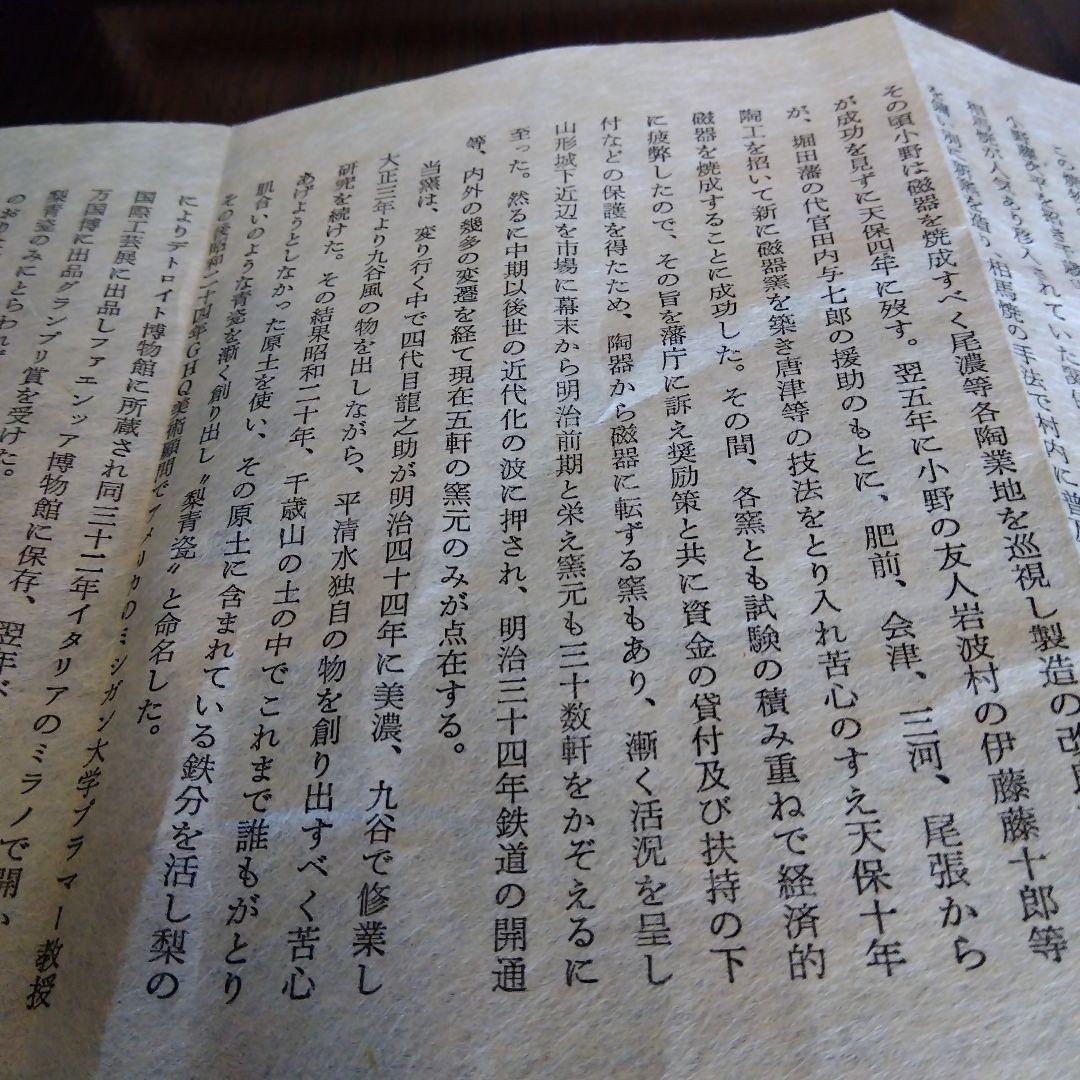 小野藤次平を
相馬焼が人気あり
を雇い
相馬焼の手法で村内に普及
その頃小野は磁器を焼成すべく尾濃等各陶業地を巡視し製造の改
が成功を見ずに天保四年に歿す。翌五年に小野の友人岩波村の伊藤藤十郎等
が、堀田藩の代官田内与七郎の援助のもとに、肥前、会津、三河、尾張から
陶工を招いて新に磁器窯を築き唐津等の技法をとり入れ苦心のすえ天保十年
磁器を焼成することに成功した。その間、各窯とも試験の積み重ねで経済的
に疲弊したので、その旨を藩庁に訴え奨励策と共に資金の貸付及び扶持の下
付などの保護を得たため、陶器から磁器に転ずる窯もあり、漸く活況を呈し
山形城下近辺を市場に幕末から明治前期と栄え窯元も三十数軒をかぞえるに
至った。然るに中期以後世の近代化の波に押され、明治三十四年鉄道の開通
等、内外の幾多の変遷を経て現在五軒の窯元のみが点在する。
当窯は、変り行く中で四代目龍之助が明治四十四年に美濃、九谷で修業し
大正三年より九谷風の物を出しながら、平清水独自の物を創り出すべく苦心
研究を続けた。その結果昭和二十年、千歳山の土の中でこれまで誰もがとり
あげようとしなかった原土を使い、その原土に含まれている鉄分を活し梨の
肌合いのような青瓷を漸く創り出し〝梨青瓷〟と命名した。
その後昭和二十四年GHQ美術顧問でアメリカのミシガン大学プラマー教授
によりデトロイト博物館に所蔵され同三十二年イタリアのミラノで開い
国際工芸展に出品しファエンツァ博物館に保存、翌年ベ
万国博に出品グランプリ賞を受けた。
梨青瓷のみにとらわれ